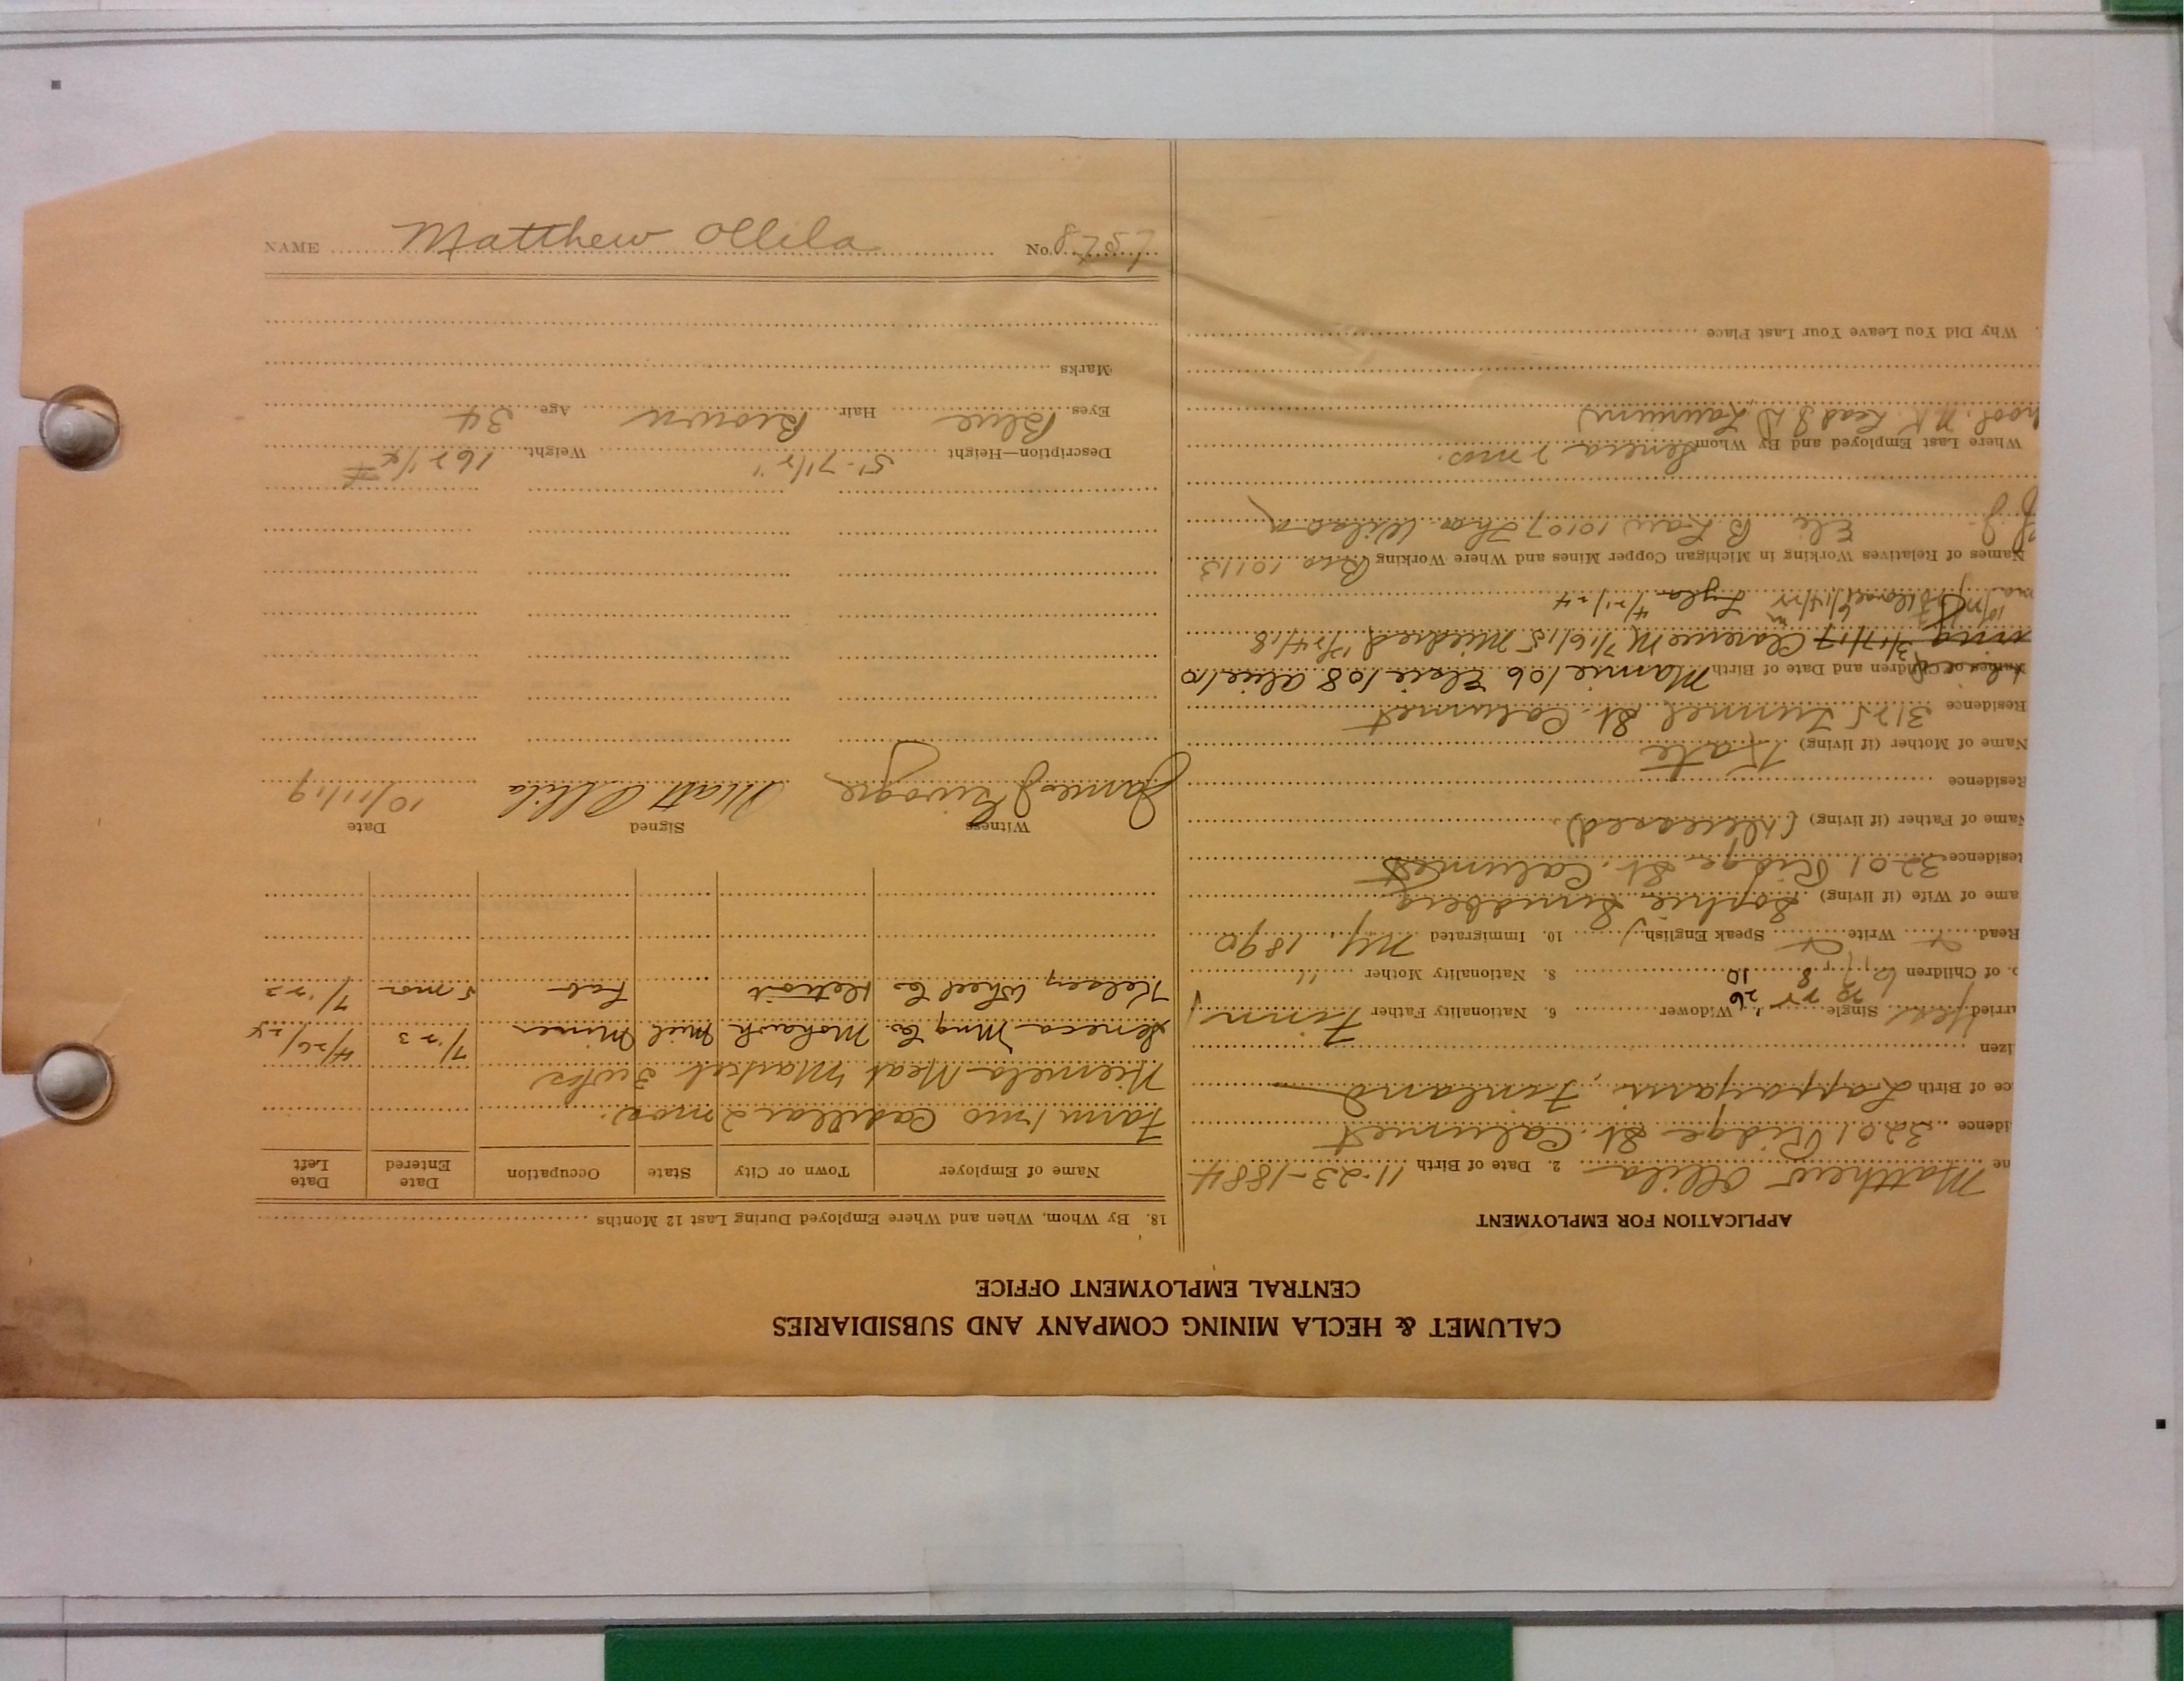 CALUMET & HECLA MINING COMPANY AND SUBSIDIARIES
CENTRAL EMPLOYMENT OFFICE
APPLICATION FOR EMPLOYMENT
ne Matthew Ollila 2. Date of Birth 11-23-1884
idence 3201 Ridge St. Calumet
ce of Birth Lappajarvi, Finland
izen
rried Yes Single Widower 6. Nationality Father Finn
o. of Children 6 7 8 10 8. Nationality Mother "
Read Write Speak English 10. Immigrated NY 1890
ame of Wife (if living) Sophie
esidence 3201 Ridge St. Calumet
Name of Father (if living) (Deceased)
Residence
Name of Mother (if living) Kate
Residence 3125 Tunnel St. Calumet
Names of Children and Date of Birth Mamie /06 Elsie /08 Alice /10
3/17/17 Clarence M 7/6/15 Mildred 7/24/18
Lyla 4/21/24
Names of Relatives Working in Michigan Copper Mines and Where Working Bro 10113
Eli B Law 10107 Thos Wilson
Where Last Employed and By Whom Seneca 2 mos.
Why Did You Leave Your Last Place
18. By Whom, When and Where Employed During Last 12 Months
Name of Employer Town or City State Occupation Date Entered Date Left
Farm 1 mo Cadillac 2 mos.
Niemela Meat Market 3 wks
Seneca Mng Co. Mohawk Mich Miner 7/23 4/26/24
Kelsey Wheel Co Detroit Lab 5 mos 7/23
Witness Signed Date
James Matt Ollila 10/11/19
Description—Height 5'-7 1/2" Weight 162 1/2 #
Eyes Blue Hair Brown Age 34
Marks
NAME Matthew Ollila No. 8787